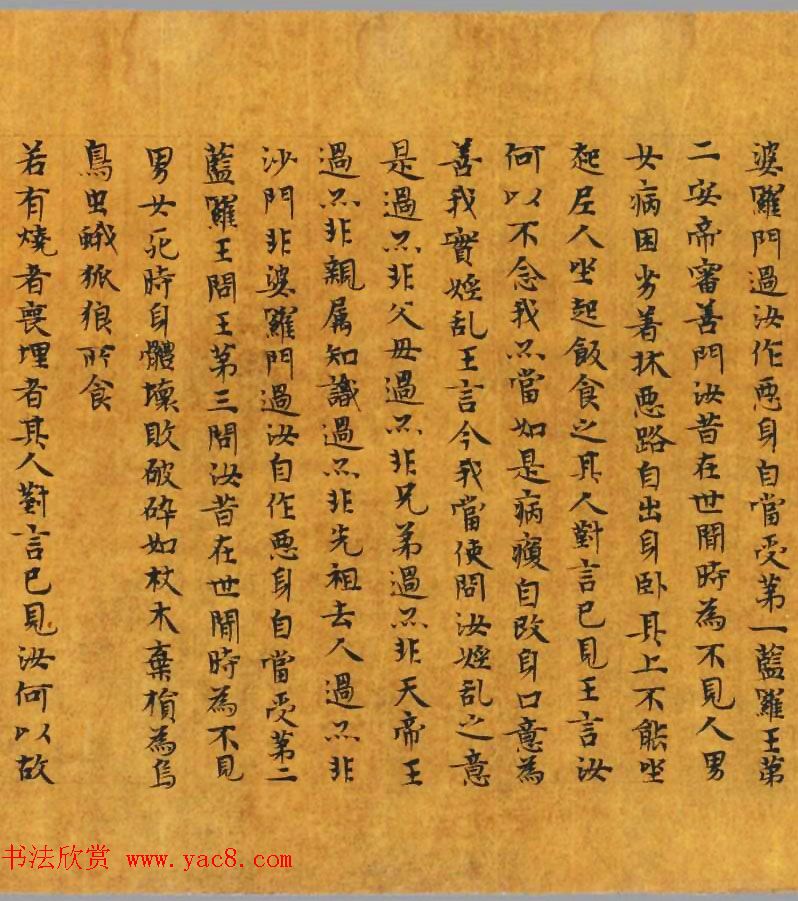 婆羅門過汝作惡身自當受第一藍羅王第
二安帝審善門汝昔在世間時為不見人男
女病困劣著床惡路自出身卧其上不能坐
起居人坐起飯食之其人對言已見王言汝
何以不念我亦當如是病瘦自改身口意為
善我實婬乱王言今我當使問汝婬乱之意
是過亦非父母過亦非兄弟過亦非天帝王
過亦非親属知識過亦非先祖去人過亦非
沙門非婆羅門過汝自作惡身自當受第二
藍羅王問王第三問汝昔在世間時為不見
男女死時身體壞敗破碎如杖木棄損為烏
鳥虫蛾狐狼所食
若有燒者喪埋者其人對言已見汝何以故
书法欣赏 www.yac8.com